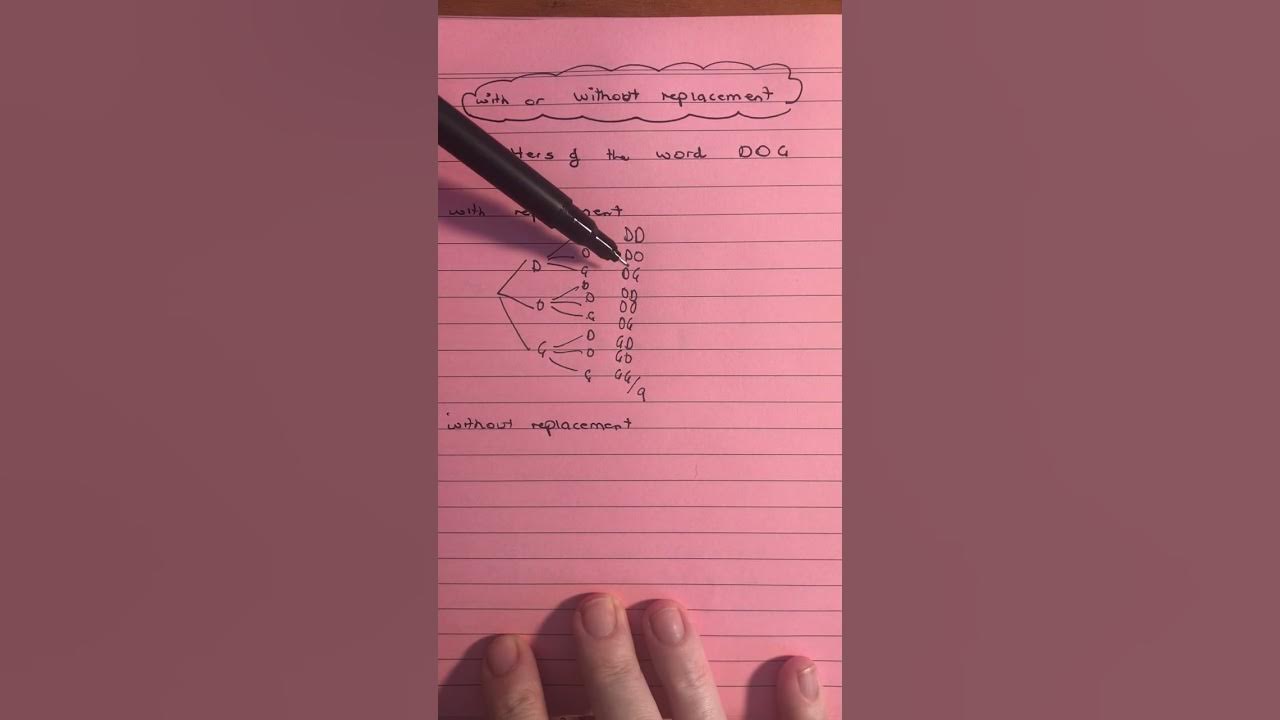 with or without replacement
tters of the word DOG
with replacement
DD
O DO
D G DG
D OD
O O OO
G OG
D GD
G O GO
G GG
/9
without replacement